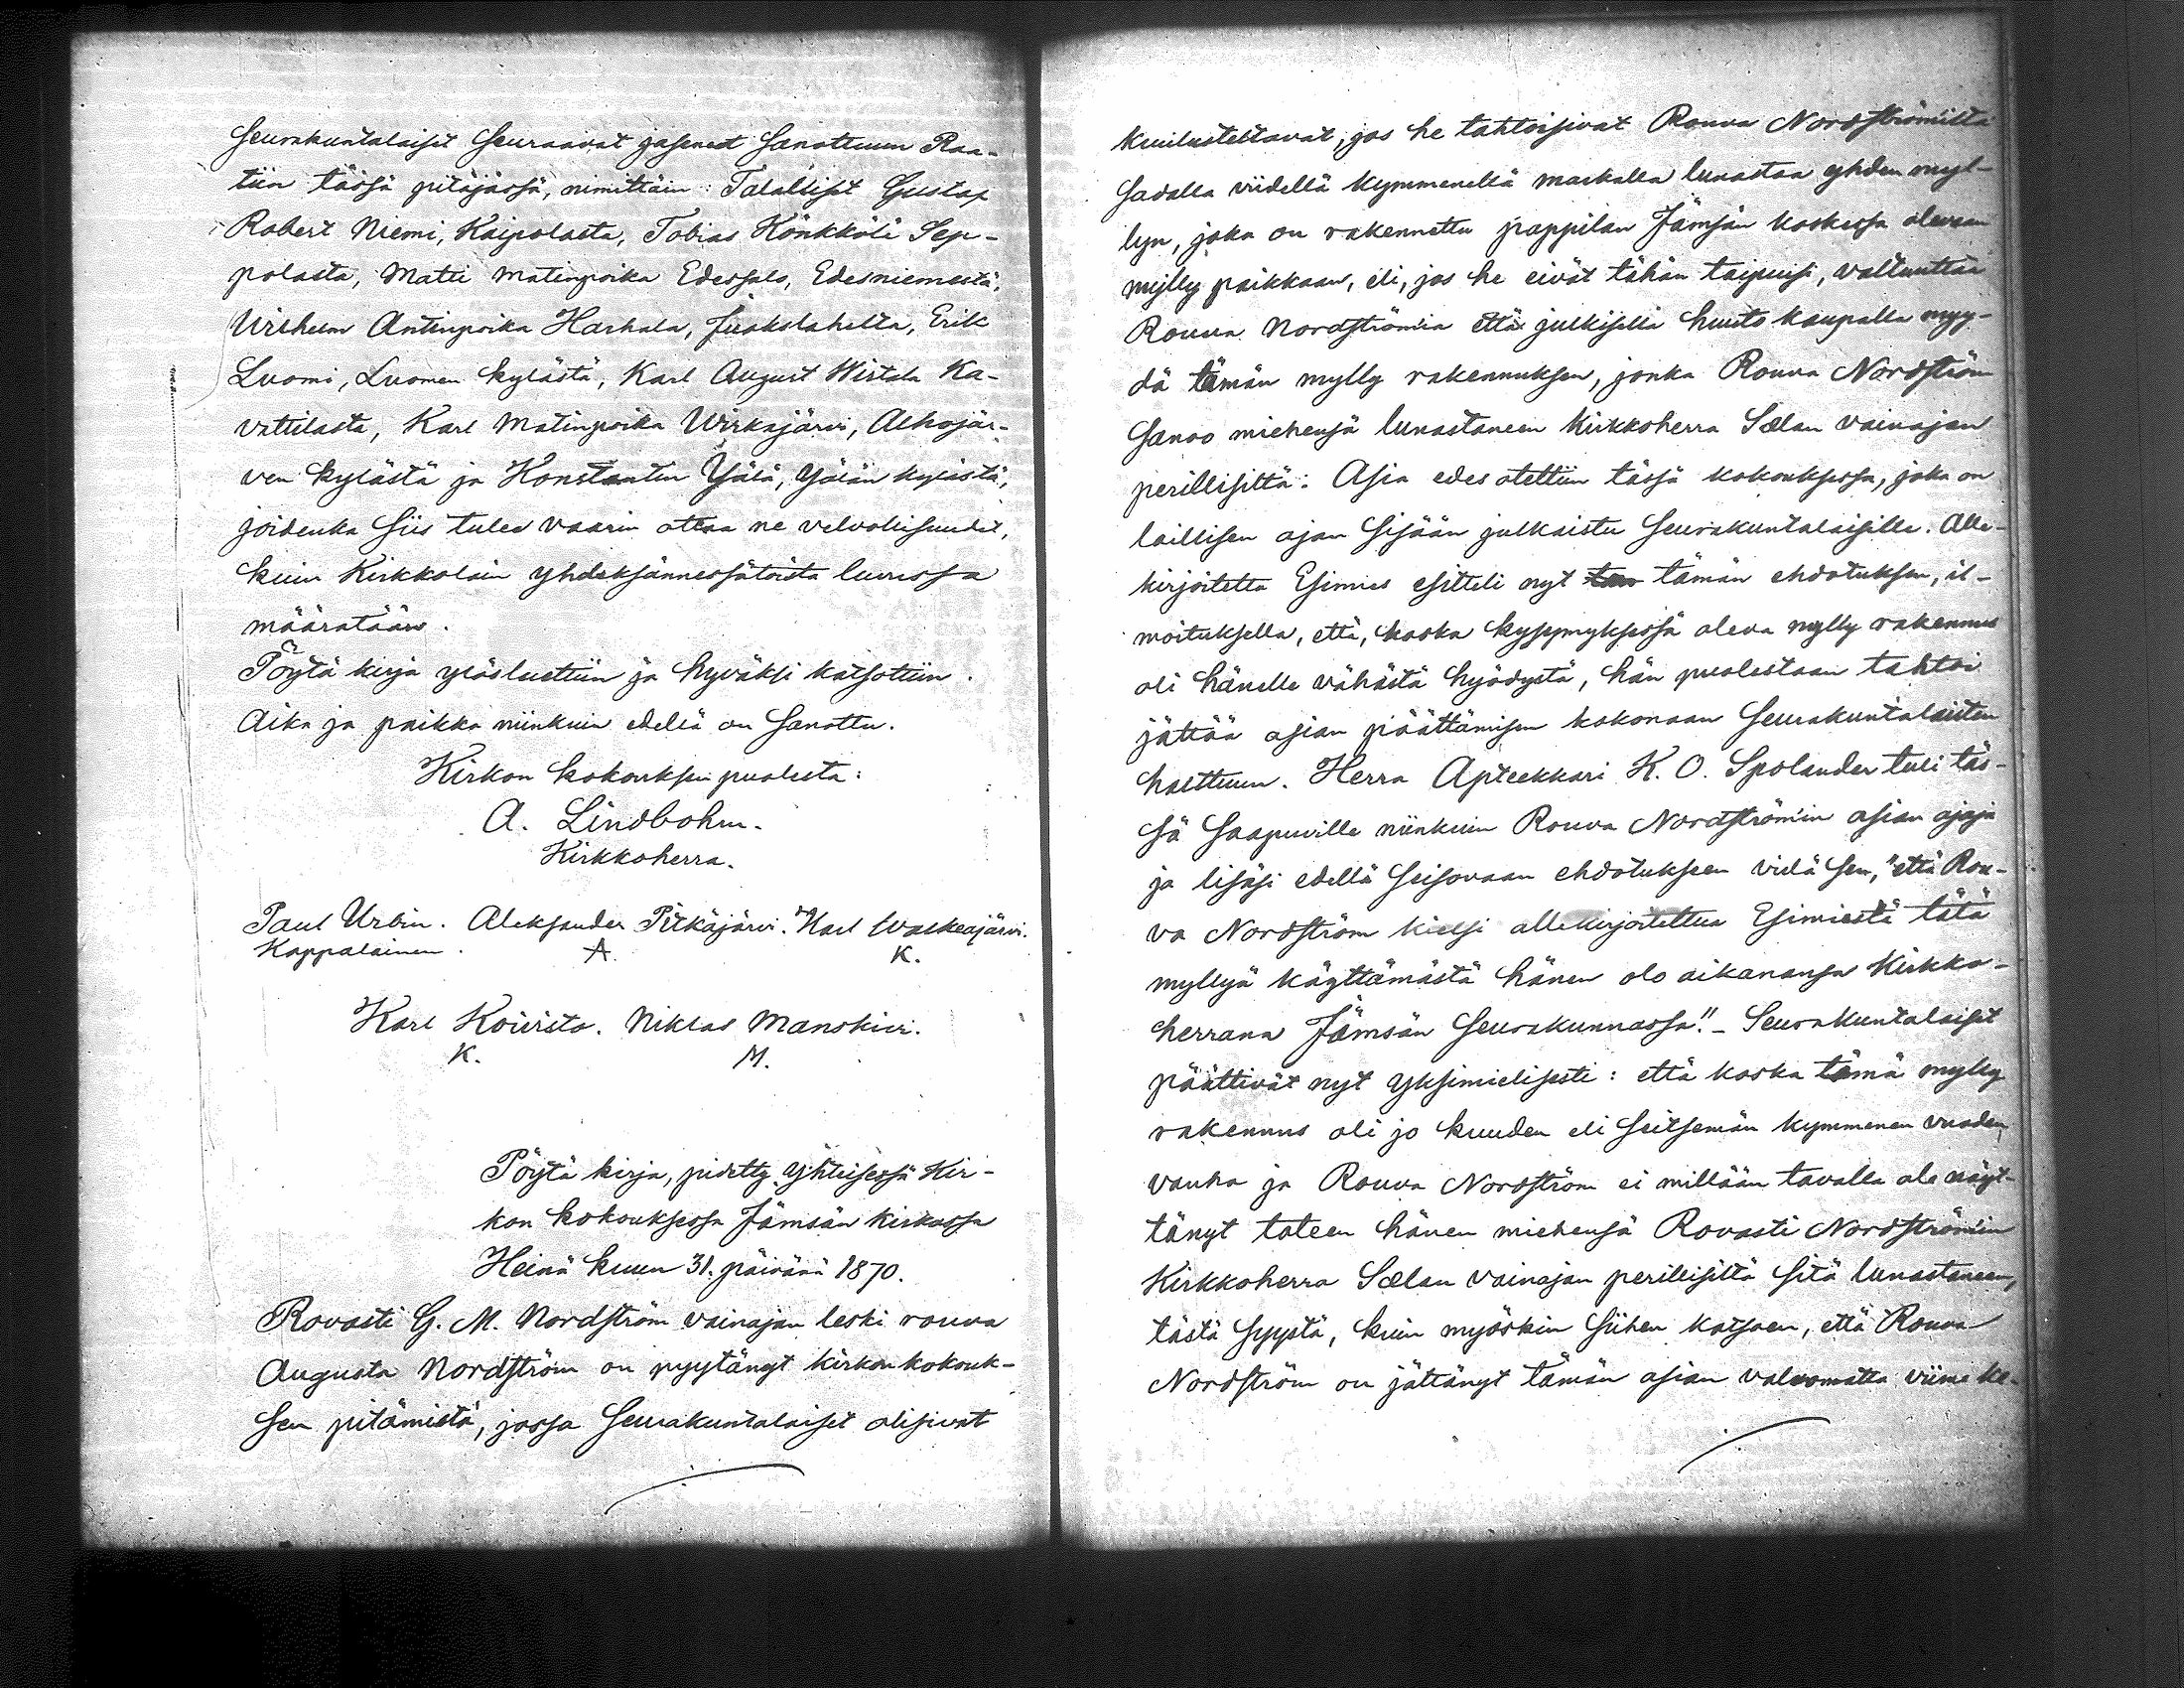 Seurakuntalaiset Seuraavat jäsenet Sanottuun Raa-
tiin tässä pitäjässä, nimittäin: Talalliset Gustaf
Robert Niemi, Kaipolasta, Tobias Könkkölä Sep-
polasta, Matti Matinpoika Edessalo, Edesniemestä,
Wilhelm Antinpoika Harhala, Juokslahelta, Erik
Luomi, Luomen kylästä, Karl August Wirtala Ka-
vattilasta, Karl Matinpoika Wirkajärvi, Alhojär-
ven kylästä ja Konstantin Ylälä, Yälän kylästä,
joidenka Siis tulee vaarin ottaa ne velvollisuudet,
kuin Kirkkolain yhdeksännessätoista luvussa
määrätään.
Pöytä kirja ylösluettiin ja hyväksi katsottiin.
Aika ja paikka niinkuin edellä on Sanottu.
Kirkon kokouksen puolesta:
A. Lindbohm.
Kirkkoherra.
Paul Urbin. Aleksander Pitkäjärvi. Karl Walkeajärvi.
Kappalainen. A. K.
Karl Koivisto. Niklas Manskivi.
K. M.
Pöytä kirja, pidetty yhteisessä Kir-
kon kokouksessa Jämsän kirkossa
Heinä kuun 31. päivänä 1870.
Rovasti G. M. Nordström vainajan leski rouva
Augusta Nordström on pyytänyt kirkon kokouk-
Sen pitämistä, jossa Seurakuntalaiset olisivat
kuulusteltavat, jos he tahtoisivat Rouva Nordströmiltä
Sadalla viidellä kymmenellä markalla lunastaa yhden myl-
lyn, joka on rakennettu pappilan Jämsän koskessa olevaan
mylly paikkaan, eli, jos he eivät tähän taipuisi, valtuuttaa
Rouva Nordströmia että julkisella huuto kaupalla myy-
dä tämän mylly rakennuksen, jonka Rouva Nordström
Sanoo miehensä lunastaneen Kirkkoherra Sælan vainajan
perillisiltä: Asia edes otettiin tässä kokouksessa, joka on
laillisen ajan Sisään julkaistu Seurakuntalaisille. Alle-
kirjoitettu Esimies esitteli nyt tämän ehdotuksen, il-
moituksella, että, koska kysymyksessä oleva mylly rakennus
oli hänelle vähästä hyödystä, hän puolestaan tahtoi
jättää asian päättämisen kokonaan Seurakuntalaisten
halttuun. Herra Apteekkari K. O. Spolander tuli täs-
Sä Saapuville niinkuin Rouva Nordström'in asian ajaja
ja lisäsi edellä Seisovaan ehdotukseen vielä Sen, "että Rou-
va Nordström kielsi allekirjoitettua Esimiestä tätä
myllyä käyttämästä hänen olo aikanansa Kirkko-
herrana Jämsän Seurakunnassa". - Seurakuntalaiset
päättivät nyt yksimielisesti: että koska tämä mylly
rakennus oli jo kuuden eli Seitsemän kymmenen vuoden
vanha ja Rouva Nordström ei millään tavalla ole näyt-
tänyt toteen hänen miehensä Rovasti Nordström'in
Kirkkoherra Sælan vainajan perillisiltä Sitä lunastaneen,
tästä Syystä, kuin myöskin Siihen katsoen, että Rouva
Nordström on jättänyt tämän asian valvomatta viime ke-